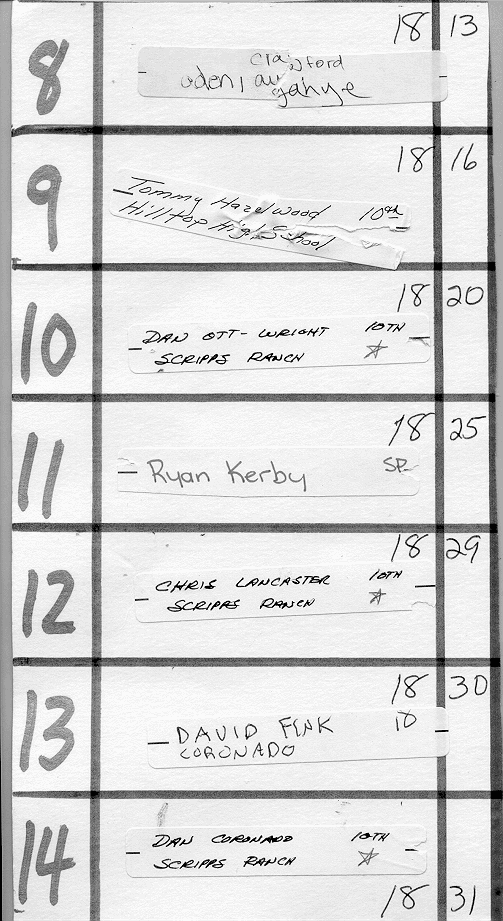 8 18 13
Crawford
9 18 16
Tommy Hazelwood 10th
Hilltop High School
10 18 20
DAN OTT-WRIGHT 10TH
SCRIPPS RANCH ☆
11 18 25
Ryan Kerby SP
12 18 29
CHRIS LANCASTER 10TH
SCRIPPS RANCH ☆
13 18 30
DAVID FINK 10
CORONADO
14
DAN CORONADO 10TH
SCRIPPS RANCH ☆
18 31